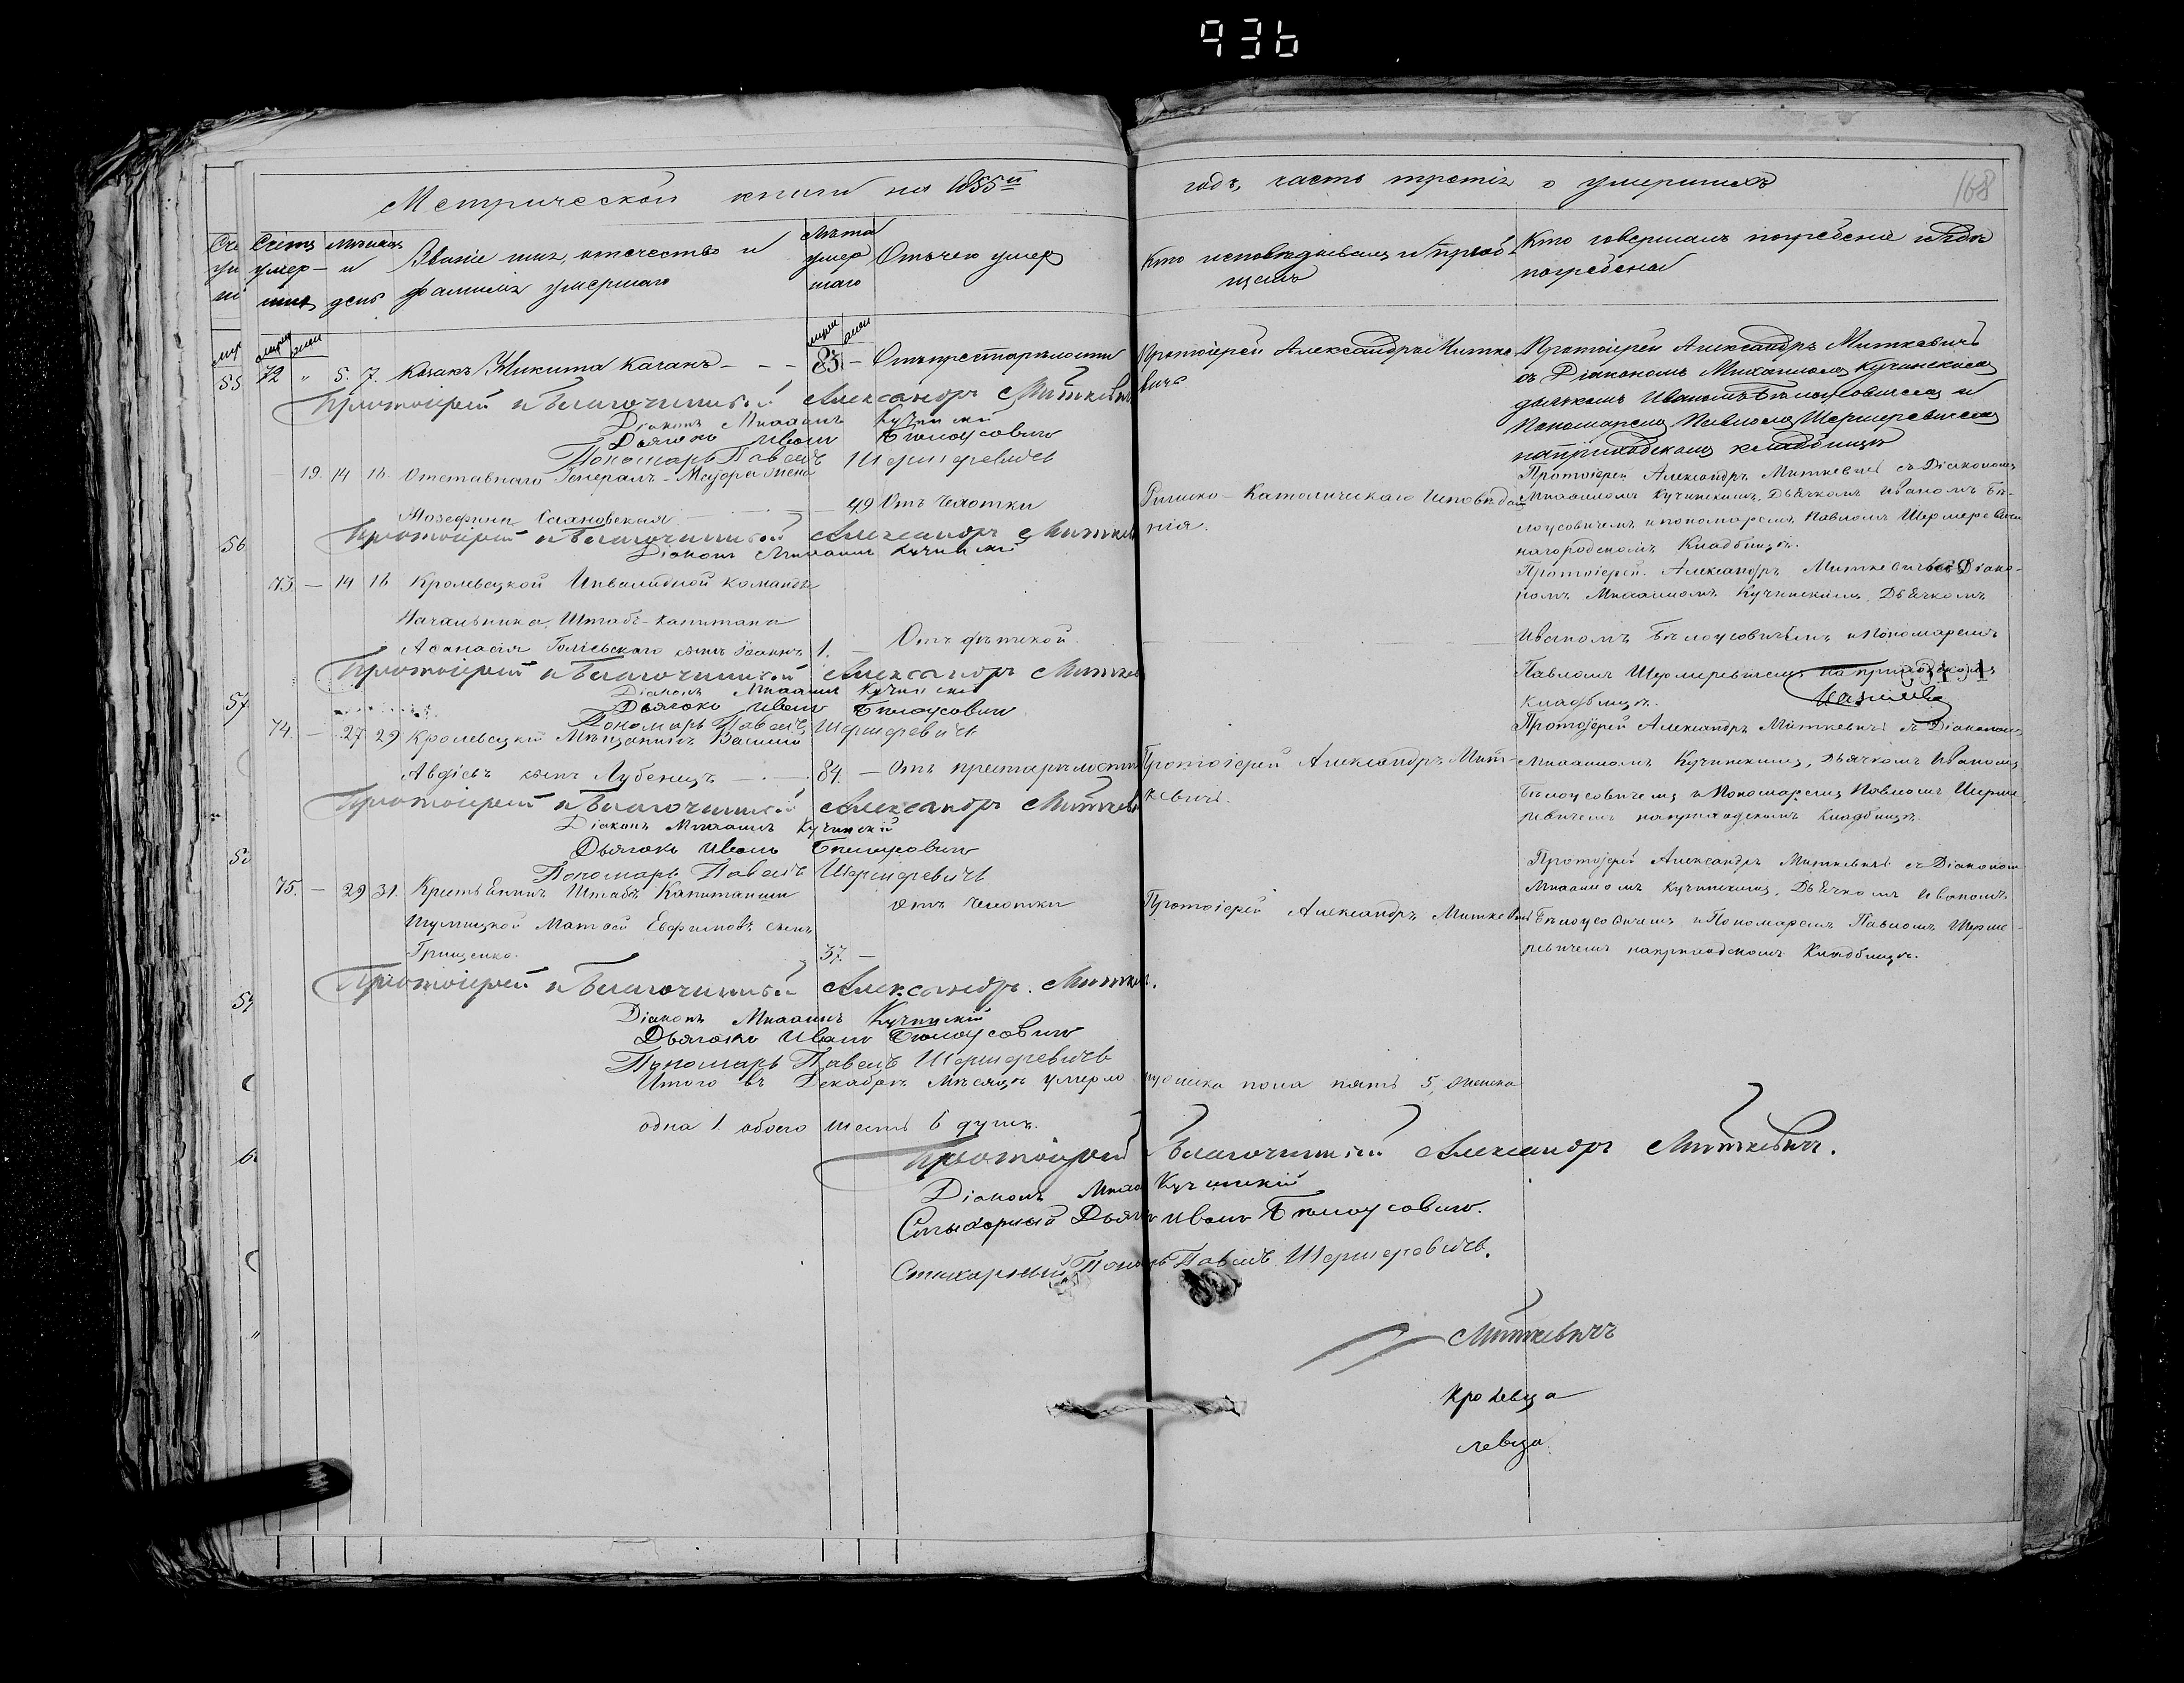 936
168
Метрической книги на 1855й годъ, часть третія о умершихъ
Счетъ умер- шихъ
Мѣсяцъ и день
Званіе имя, отечество и фамилія умершаго
Лѣта умер шаго
Отъ чего умеръ
Кто исповѣдывалъ и пріоб- щалъ
Кто совершалъ погребеніе и гдѣ погребены
72 " 5. 7. Козакъ Никита Качанъ - - - 83. - Отъ престарѣлости
Протоіерей Александръ Митке-
вичъ
Протоіерей Александръ Миткевичъ
съ Діакономъ Михаиломъ Кучинскимъ
дьячкомъ Иваномъ Бѣлоусовичемъ и
Пономаремъ Павломъ Шермеревичемъ
на приходскомъ кладбищѣ
Протоіерей и Благочинный Александръ Миткевичъ
Діаконъ Михаилъ Кучинскій
Дьячокъ Иванъ Бѣлоусовичъ
Пономарь Павелъ Шермеревичъ
19. 14 16. Отставнаго Генералъ-Маіора жена
Іозефина - 49 Отъ Чахотки
Римско-Католическаго Исповѣда
нія.
Протоіерей Александръ Миткевичъ съ Діакономъ
Михаиломъ Кучинскимъ, Дьячкомъ Иваномъ Бѣ-
лоусовичемъ и пономаремъ Павломъ Шермереви
на городскомъ Кладбищѣ.
Протоіерей и Благочинный Александръ Миткев
Діаконъ Михаилъ Кучинскій
73. - 14 16 Кролевецкой Инвалидной Команды
Начальника, Штабъ-Капитана
Афанасія сынъ Іоаннъ 1. - Отъ
Протоіерей Александръ Миткевичъ съ Діако-
номъ Михаиломъ Кучинскимъ, Дьячкомъ
Иваномъ Бѣлоусовичемъ и Пономаремъ
Павломъ Шермеревичемъ на приходскомъ
Кладбищѣ.
Протоіерей и Благочинный Александръ Миткев
Діаконъ Михаилъ Кучинскій
Дьячокъ Иванъ Бѣлоусовичъ
Пономарь Павелъ Шермеревичъ
74. - 27 29 Кролевецкій Мѣщанинъ Василій
Авдіевъ сынъ Лубенецъ - 84. - Отъ престарѣлости
Протоіерей Александръ Мит-
кевичъ.
Протоіерей Александръ Миткевичъ съ Діакономъ
Михаиломъ Кучинскимъ, Дьячкомъ Иваномъ
Бѣлоусовичемъ и Пономаремъ Павломъ Шерме
ревичемъ на приходскомъ Кладбищѣ.
Протоіерей и Благочинный Александръ Миткев
Діаконъ Михаилъ Кучинскій
Дьячокъ Иванъ Бѣлоусовичъ
Пономарь Павелъ Шермеревичъ
75. - 29 31. Штабъ Капитанши
Матѳей Евфимовъ сынъ
Грищенко. 37. - отъ Чахотки
Протоіерей Александръ Миткевичъ
Протоіерей Александръ Миткевичъ съ Діакономъ
Михаиломъ Кучинскимъ, Дьячкомъ Иваномъ
Бѣлоусовичемъ и Пономаремъ Павломъ Шерме-
ревичемъ на приходскомъ Кладбищѣ.
Протоіерей и Благочинный Александръ Миткев.
Діаконъ Михаилъ Кучинскій
Дьячокъ Иванъ Бѣлоусовичъ
Пономарь Павелъ Шермеревичъ
Итого въ Декабрѣ Мѣсяцѣ умерло мужеска пола пять 5, женска
одна 1. обоего шесть 6 душъ.
Протоіерей Благочинный Александръ Миткевичъ.
Діаконъ Миха Кучинскій
Стихарный Дьячо Иванъ Бѣлоусовичъ.
Стихарный Поно рь Павелъ Шермеревичъ.
Миткевичъ
Кролевца
левца